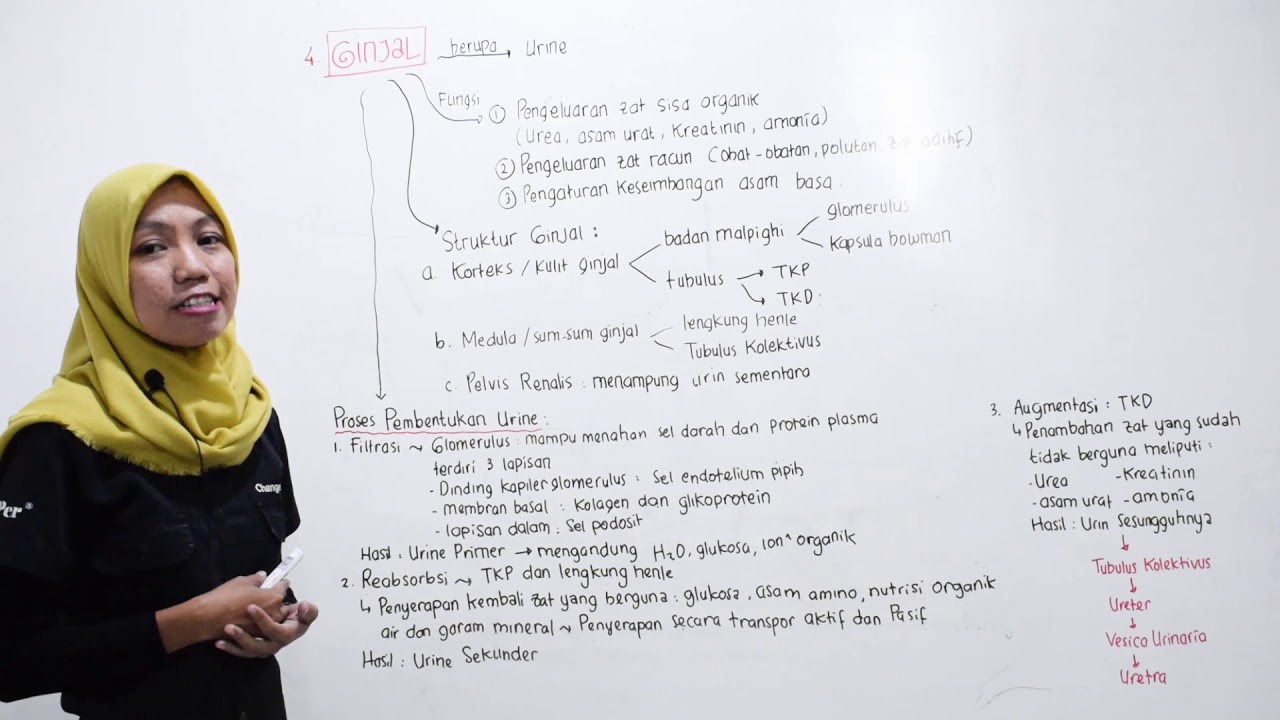 4. GINJAL berupa Urine
Fungsi
① Pengeluaran zat sisa organik
(Urea, asam urat, Kreatinin, amonia)
② Pengeluaran zat racun (obat-obatan, polutan, zat aditif)
③ Pengaturan Keseimbangan asam basa.
Struktur Ginjal :
a. Korteks / Kulit ginjal
badan malpighi
glomerulus
Kapsula bowman
tubulus
TKP
TKD.
b. Medula / sum-sum ginjal
lengkung henle
Tubulus Kolektivus
c. Pelvis Renalis : menampung urin sementara
Proses Pembentukan Urine :
1. Filtrasi ~ Glomerulus : mampu menahan sel darah dan protein plasma
terdiri 3 lapisan
- Dinding kapiler glomerulus : Sel endotelium pipih
- membran basal : Kolagen dan glikoprotein
- lapisan dalam : Sel podosit
Hasil : Urine Primer → mengandung H₂O, glukosa, ion² organik
2. Reobsorbsi ~ TKP dan lengkung henle
↳ Penyerapan kembali zat yang berguna : glukosa, asam amino, nutrisi organik
air dan garam mineral ~ Penyerapan secara transpor aktif dan Pasif
Hasil : Urine Sekunder
3. Augmentasi : TKD
↳ Penambahan zat yang sudah
tidak berguna meliputi :
- Urea - Kreatinin
- asam urat - amonia
Hasil : Urin Sesungguhnya
↓
Tubulus Kolektivus
↓
Ureter
↓
Vesica Urinaria
↓
Uretra
per®
Change